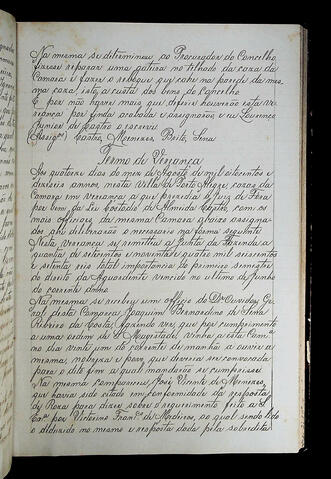 Na mesma se determinou ao Procurador do Concelho
fizesse reparar uma gateira no telhado da caza da
Camera e fazer o reboque que cahe na parede da mes-
ma caza, isto a custa dos bens do Concelho
E por não haver mais que diferir houverão esta ve-
riança por finda acabada e assignarão e eu Lourenço
Junior de Castro o escrevi
(Assig.os) Castro, Menezes, Brito, Sena
Termo de Veriança
Aos quatorze dias do mez de Agosto de mil oitocentos e
dezaseis annos, nesta Villa de Porto Alegre, cazas da
Camara em veriança a que prezidia o Juiz de Fora
por bem da Lei Costodio de Almeida Castro, com os
mais officiais da mesma Camara abaixo assigna-
dos que diliberarão o necessario na forma seguinte
Nesta veriança se remitteu a Junta da Fazenda a
quantia de setecentos e noventa e quatro mil seiscentos
e setenta reis total importancia do primeiro semestre
do direito da Aguardente vencido no ultimo de Junho
do corrente anno
Na mesma se recebeu um officio do Dr Ouvidor Ge-
ral desta Comarca, Joaquim Bernardino de Sena
Ribeiro da Costa, fazendo ver, que por cumprimento
a uma ordem de S. Magestade, vinha a esta Cama-
no dia vinte um do corrente de manhã a ouvir a
mesma, nobreza e povo que deveria ser convocada
para o dito fim a qual mandarão se cumprisse
Na mesma compareceu José Vicente de Menezes
que havia sido citado em conformidade da resposta
de Roza para dizer sobre o requerimento feito a
por Victorino Fran.co de Medeiros, ao qual sendo lido
o deduzido no mesmo e resposta dada pela sobredita